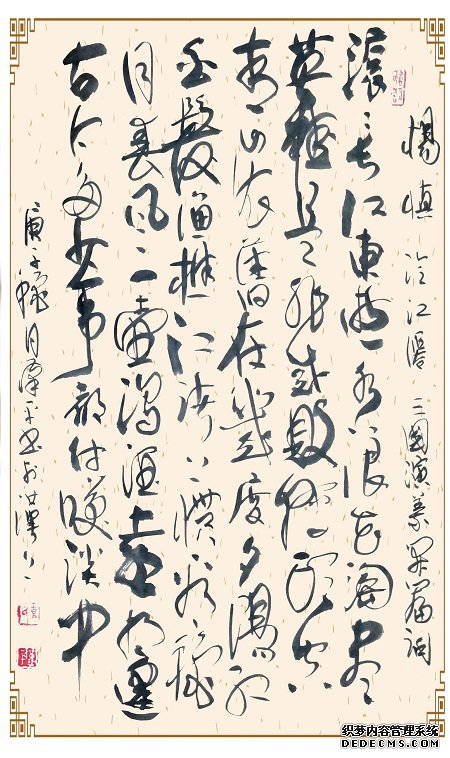 楊慎 临江僊 三國演義开篇詞
滚滚长江東逝水浪花淘尽
英雄是非成敗转头空
青山依舊在幾度夕陽红
白髮漁樵江渚上慣看秋
月春風一壺濁酒喜相逢
古今多少事都付笑談中
庚子秋月
织梦内容管理系统
DEDECMS.COM